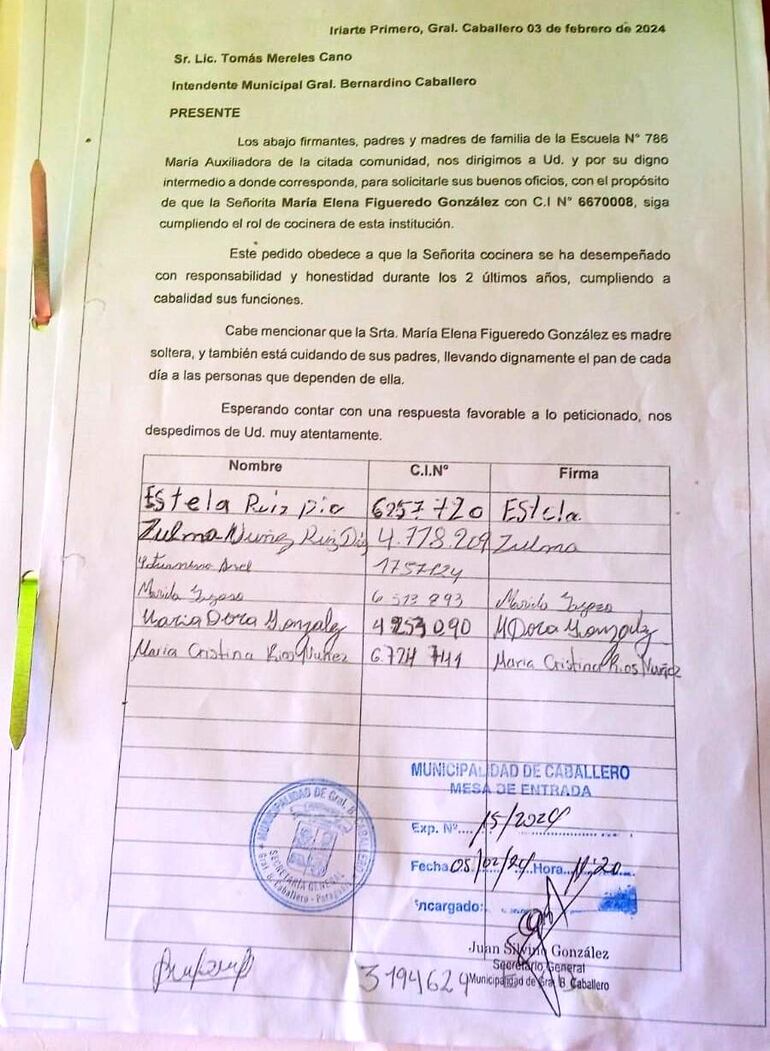 Iriarte Primero, Gral. Caballero 03 de febrero de 2024
Sr. Lic. Tomás Mereles Cano
Intendente Municipal Gral. Bernardino Caballero
PRESENTE
Los abajo firmantes, padres y madres de familia de la Escuela N° 786
María Auxiliadora de la citada comunidad, nos dirigimos a Ud. y por su digno
intermedio a donde corresponda, para solicitarle sus buenos oficios, con el propósito
de que la Señorita María Elena Figueredo González con C.I N° 6670008, siga
cumpliendo el rol de cocinera de esta institución.
Este pedido obedece a que la Señorita cocinera se ha desempeñado
con responsabilidad y honestidad durante los 2 últimos años, cumpliendo a
cabalidad sus funciones.
Cabe mencionar que la Srta. María Elena Figueredo González es madre
soltera, y también está cuidando de sus padres, llevando dignamente el pan de cada
día a las personas que dependen de ella.
Esperando contar con una respuesta favorable a lo peticionado, nos
despedimos de Ud. muy atentamente.
Nombre C.I.N° Firma
Estela Ruiz Dia 6257720 Estela
Zulma Nuñez Ruiz Diz 4.778.209 Zulma
1757124
Maria Dora Gonzalez 4253090 M Dora Gonzalez
Maria Cristina Rios Nuñez 6.724 741 Maria Cristina Rios Nuñez
MUNICIPALIDAD DE CABALLERO
MESA DE ENTRADA
Exp. N°.... 15/2024
Fecha 05/02/24 Hora 11:20
Encargado:
MUNICIPALIDAD DE Gral. B. CABALLERO
SECRETARÍA GENERAL
Gral. B. Caballero - Paraguay
Juan Silvino González
Secretario General
Municipalidad de Gral. B. Caballero
3194629